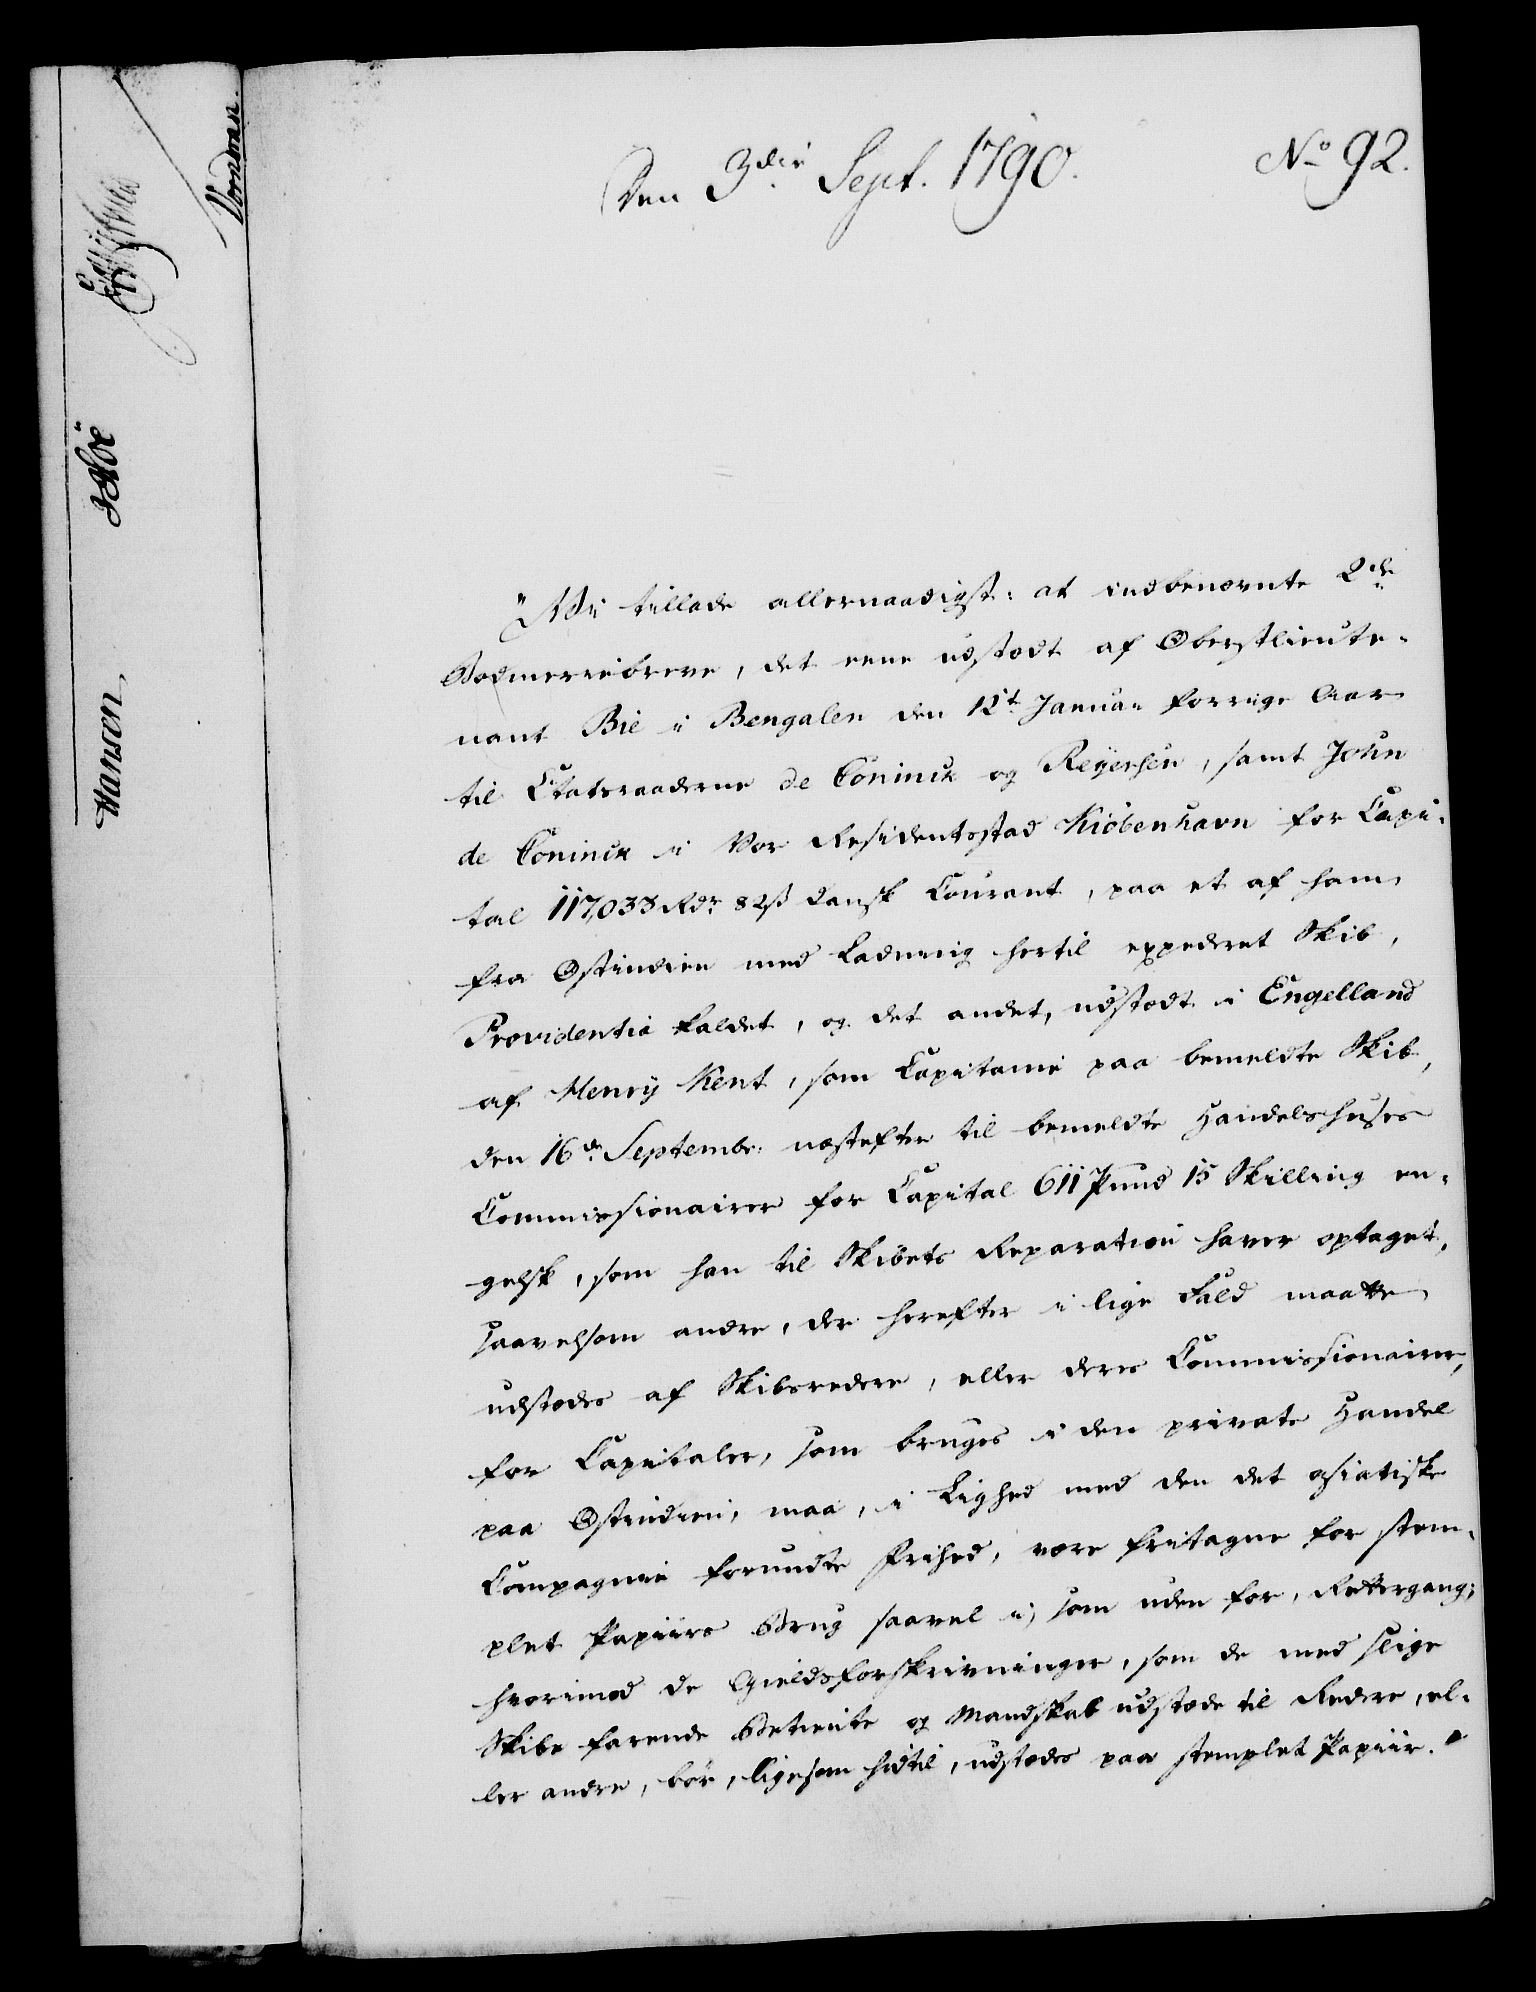 Den 3die Sept. 1790.
No 92.
"Wii tillade allernaadigst: at indbenævnte 2de
Bodmeriebreve, det eene udstædt af Oberstlieute-
nant Bie i Bengalen den 12t Januar forrige Aar
til Etatsraaderne de Coninck og Reÿersen, samt John
de Coninck i Vor Residentsstad Kiöbenhavn for Capi-
tal 117,033 Rdr 82 ß dansk Courant, paa et af ham
fra Ostindien med Ladning hertil expederet Skib,
Providentia kaldet, og det andet, udstædt i Engelland
af Henrÿ Kent, som Capitaine paa bemeldte Skib,
den 16de Septembr. næstefter til bemeldte Handelshuses
Commissionairer for Capital 611 Pund 15 Skilling en-
gelsk, som han til Skibets Reparation haver optaget,
saavelsom andre, der herefter i lige Fald maatte
udstædes af Skibsredere, eller deres Commissionairer,
for Capitaler, som bruges i den private Handel
paa Ostindien, maa, i Lighed med den det asiatiske
Compagnie forundte Frihed, være fritagne for stem-
plet Papiirs Brug saavel i, som uden for, Rettergang;
hvorimod de Gieldsforskrivninger, som de med slige
Skibe farende Betiente og Mandskab udstæde til Redere, el-
ler andre, bør, ligesom hidtil, udstædes paa stemplet Papiir."
Hansen
Høë
Vorndran.